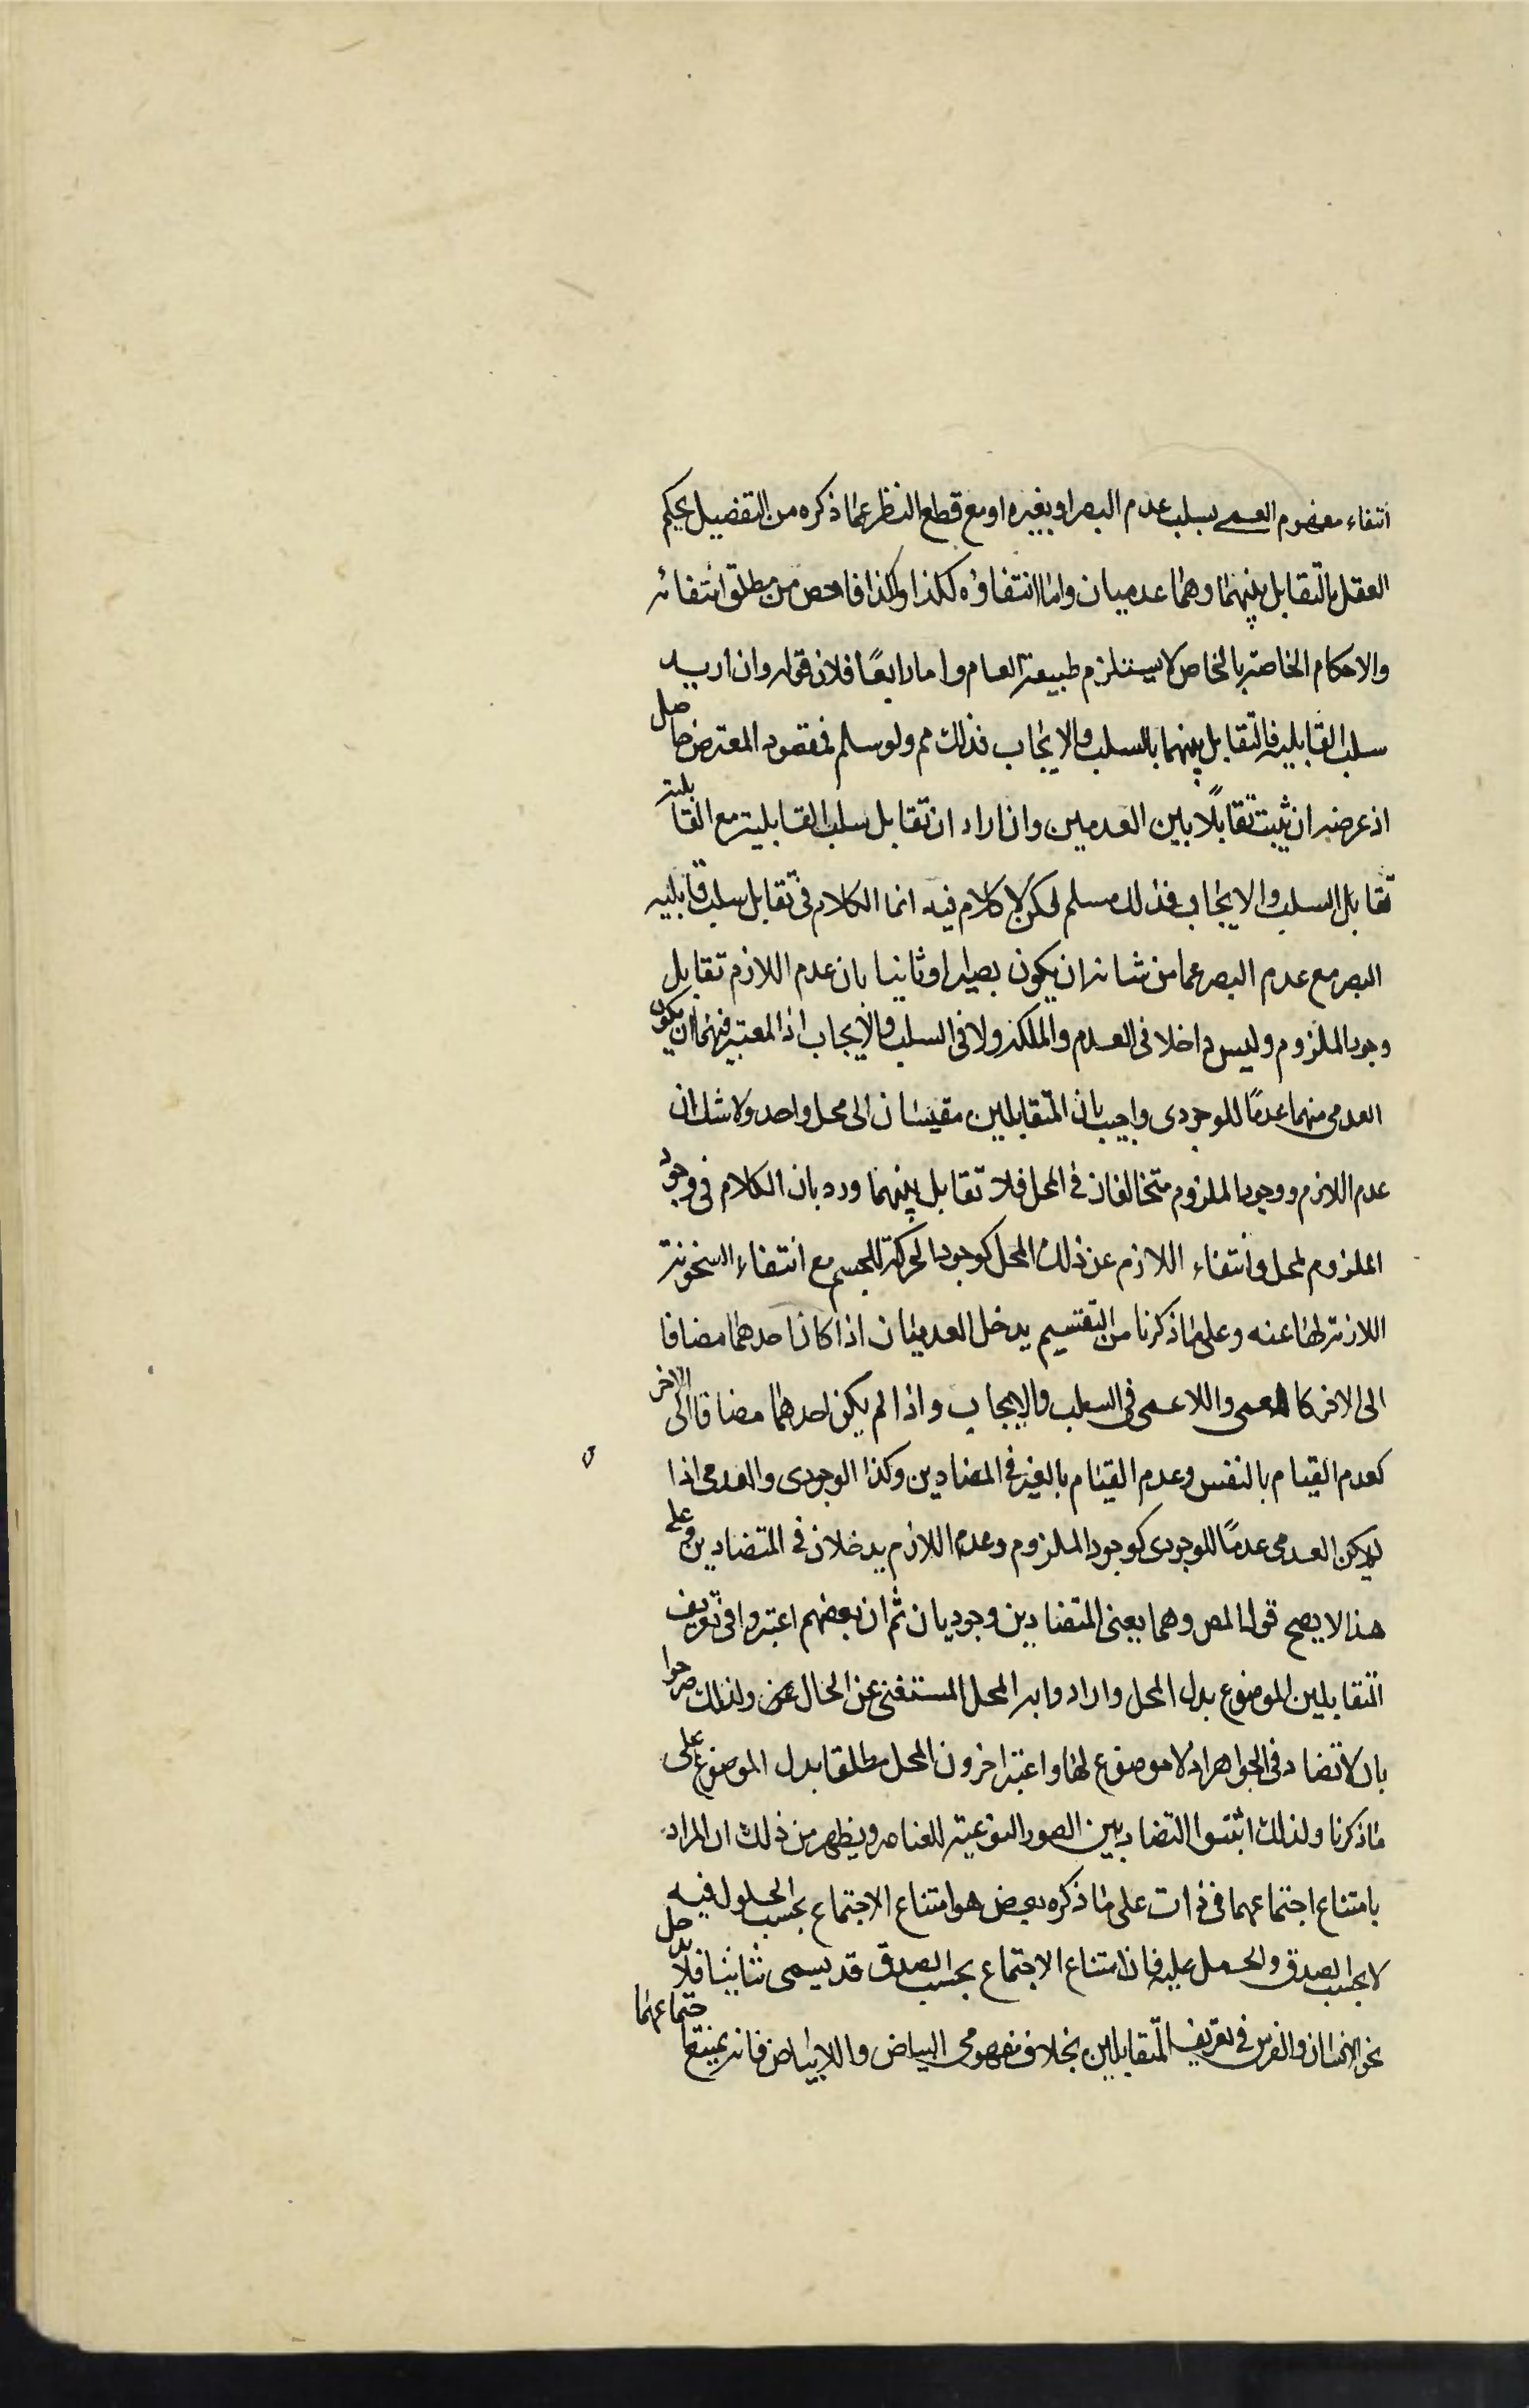 انتفاء مفهوم العمى بسلب عدم البصر او بغيره او مع قطع النظر عما ذكره من التفصيل يحكم
العقل بالتقابل بينهما وهما عدميان واما انتفاؤه ككذا وكذا فاخص من مطلق انتفائه
والاحكام الخاصة بالخاص لا يستلزم طبيعة العام واما رابعًا فلان قوله وان اريد
سلب القابلية فالتقابل بينهما بالسلب والايجاب فذلك مم ولو سلم فمقصود المعترض حاصل
اذ غرضه ان يثبت تقابلًا بين العدمين وان اراد ان تقابل سلب القابلية مع القابلية
تقابل السلب والايجاب فذلك مسلم لكن لا كلام فيه انما الكلام في تقابل سلب قابلية
البصر مع عدم البصر عما من شانه ان يكون بصيرا وثانيا بان عدم اللازم تقابل
وجود الملزوم وليس داخلا في العدم والملكة ولا في السلب والايجاب اذ المعتبر فيهما ان يكون
العدمي منهما عدمًا للوجودي واجيب بان المتقابلين مقيسان الى محل واحد ولا شك ان
عدم اللازم ووجود الملزوم متخالفان في المحل فلا تقابل بينهما ورد بان الكلام في وجود
الملزوم لمحل وانتفاء اللازم عن ذلك المحل كوجود الحركة للجسم مع انتفاء السخونة
اللازمة لها عنه وعلى ما ذكرنا من التقسيم يدخل العدميان اذا كان احدهما مضافا
الى الاخر كالعمى واللاعمى في السلب والايجاب واذا لم يكن احدهما مضافا الى الاخر
كعدم القيام بالنفس وعدم القيام بالغير في المتضادين وكذا الوجودي والعدمي اذا
لم يكن العدمي عدمًا للوجودي كوجود الملزوم وعدم اللازم يدخلان في المتضادين وعلى
هذا لا يصح قول المص وهما يعنى المتضادين وجوديان ثم ان بعضهم اعتبروا في تعريف
المتقابلين الموضوع بدل المحل وارادوا به المحل المستغنى عن الحال ولذلك صرحوا
بان لا تضاد في الجواهر اذ لا موضوع لها واعتبر اخرون المحل مطلقا بدل الموضوع على
ما ذكرنا ولذلك اثبتوا التضاد بين الصور النوعية للعناصر ويظهر من ذلك ان المراد
بامتناع اجتماعهما في ذات على ما ذكره بعض هو امتناع الاجتماع بحسب الحلول فيه
لا بحسب الصدق والحمل عليه فان امتناع الاجتماع بحسب الصدق قد يسمى تباينا فلا يدخل
نحو الانسان والفرس في تعريف المتقابلين بخلاف مفهومي البياض واللابياض فانه يمتنع اجتماعهما